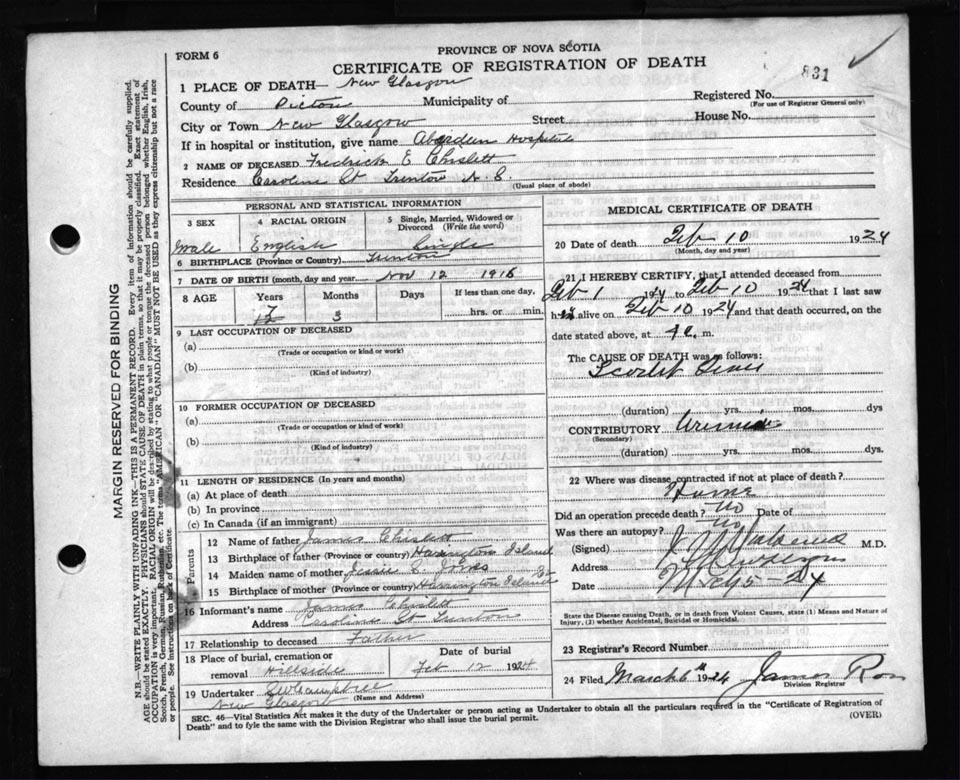 FORM 6
PROVINCE OF NOVA SCOTIA
CERTIFICATE OF REGISTRATION OF DEATH
831
1 PLACE OF DEATH— New Glasgow
County of Pictou Municipality of
Registered No.
(For use of Registrar General only)
City or Town New Glasgow Street House No.
If in hospital or institution, give name Aberdeen Hospital
2 NAME OF DECEASED Fredrick E Chislett
Residence Caroline St Trenton N. S.
(Usual place of abode)
PERSONAL AND STATISTICAL INFORMATION
3 SEX
Male
4 RACIAL ORIGIN
English
5 Single, Married, Widowed or Divorced (Write the word)
Single
6 BIRTHPLACE (Province or Country) Trenton
7 DATE OF BIRTH (month, day and year) Nov 12 1916
8 AGE Years Months Days If less than one day,
7 3 hrs. or min.
12
9 LAST OCCUPATION OF DECEASED
(a)
(Trade or occupation or kind or work)
(b)
(Kind of industry)
10 FORMER OCCUPATION OF DECEASED
(a)
(Trade or occupation or kind of work)
(b)
(Kind of industry)
11 LENGTH OF RESIDENCE (In years and months)
(a) At place of death
(b) In province
(c) In Canada (if an immigrant)
Parents
12 Name of father James Chislett
13 Birthplace of father (Province or country) Harrington Island
14 Maiden name of mother Jessie C.
15 Birthplace of mother (Province or country) Harrington Island
16 Informant's name James Chislett
Address Caroline St Trenton
17 Relationship to deceased Father
18 Place of burial, cremation or removal Hillside
Date of burial
Feb 12 1924
19 Undertaker
(Name and Address)
New Glasgow
MEDICAL CERTIFICATE OF DEATH
20 Date of death Feb 10 1924
(Month, day and year)
21 I HEREBY CERTIFY, that I attended deceased from
Feb 1 1924 to Feb 10 1924 that I last saw
him alive on Feb 10 1924 and that death occurred, on
date stated above, at 4 a. m.
The CAUSE OF DEATH was as follows:
Scarlet Fever
(duration) yrs. mos. dys
CONTRIBUTORY Uremia
(Secondary)
(duration) yrs. mos. dys
22 Where was disease contracted if not at place of death?
Home
Did an operation precede death? No Date of
Was there an autopsy? No
(Signed) M.D.
Address
Date
State the Disease causing Death, or in death from Violent Causes, state (1) Means and Nature of Injury, (2) whether Accidental, Suicidal or Homicidal.
23 Registrar's Record Number
24 Filed March 6th 1924 James Ross
Division Registrar
SEC. 46—Vital Statistics Act makes it the duty of the Undertaker or person acting as Undertaker to obtain all the particulars required in the "Certificate of Registration of
Death" and to fyle the same with the Division Registrar who shall issue the burial permit.
(OVER)
MARGIN RESERVED FOR BINDING
N.B.—WRITE PLAINLY WITH UNFADING INK—THIS IS A PERMANENT RECORD. Every item of information should be carefully supplied.
AGE should be stated EXACTLY. PHYSICIANS should STATE CAUSE OF DEATH in plain terms, so that it may be properly classified. Exact statement of
OCCUPATION is very important. RACIAL ORIGIN will be described by stating to what people or tongue the deceased person belonged whether English, Irish,
Scotch, French, German, Russian, Ruthenian, etc. The terms "AMERICAN" OR "CANADIAN" MUST NOT BE USED as they express citizenship but not a race
or people. See instructions on back of Certificate.